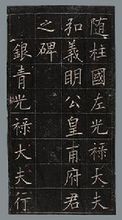 随柱國左光禄大夫
和義明公皇甫府君
之碑
銀青光禄大夫行